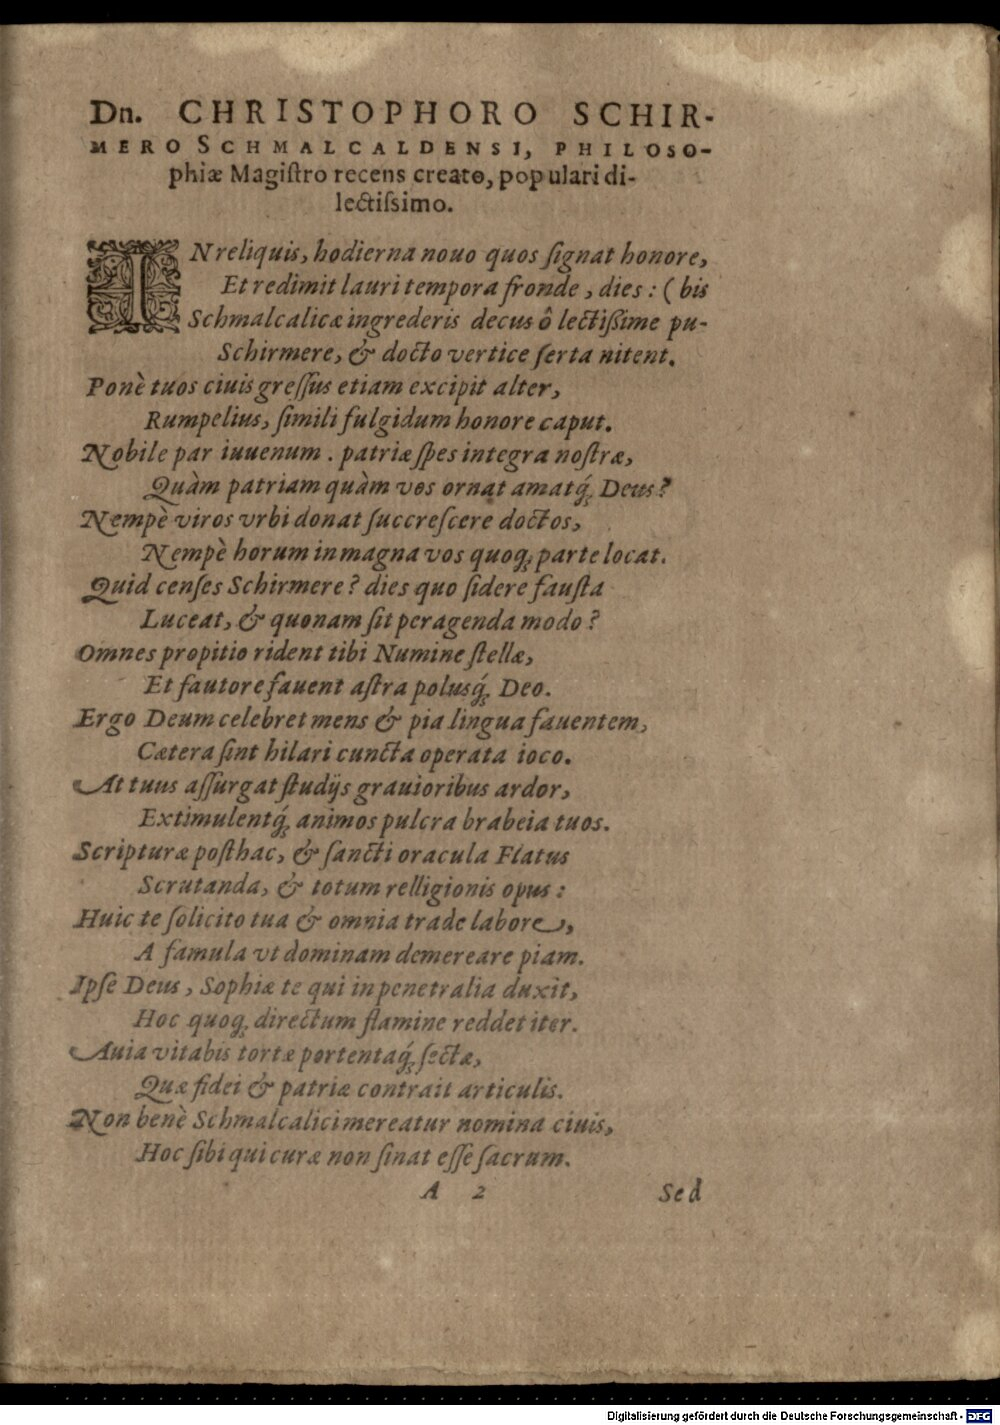 Dn. CHRISTOPHORO SCHIR-
MERO SCHMALCALDENSI, PHILOSO-
phiæ Magiſtro recens creato, populari di-
lectiſsimo.
IN reliquis, hodierna nouo quos ſignat honore,
Et redimit lauri tempora fronde, dies: (bis
Schmalcalicæ ingrederis decus ô lectißime pu-
Schirmere, & docto vertice ſerta nitent.
Ponè tuos ciuis greſſus etiam excipit alter,
Rumpelius, ſimili fulgidum honore caput.
Nobile par iuuenum. patriæ ſpes integra noſtræ,
Quàm patriam quàm vos ornat amatq́; Deus?
Nempè viros vrbi donat ſuccreſcere doctos,
Nempè horum in magna vos quoq; parte locat.
Quid cenſes Schirmere? dies quo ſidere fauſta
Luceat, & quonam ſit peragenda modo?
Omnes propitio rident tibi Numine ſtellæ,
Et fautore fauent aſtra polusq́; Deo.
Ergo Deum celebret mens & pia lingua fauentem,
Cætera ſint hilari cuncta operata ioco.
At tuus aſſurgat ſtudijs grauioribus ardor,
Extimulentq́; animos pulcra brabeia tuos.
Scripturæ poſthac, & ſancti oracula Flatus
Scrutanda, & totum relligionis opus:
Huic te ſolicito tua & omnia trade labore,
A famula vt dominam demereare piam.
Ipſe Deus, Sophiæ te qui in penetralia duxit,
Hoc quoq; directum flamine reddet iter.
Auia vitabis tortæ portentaq́; ſectæ,
Quæ fidei & patriæ contrait articulis.
Non benè Schmalcalici mereatur nomina ciuis,
Hoc ſibi qui curæ non ſinat eſſe ſacrum.
A 2 Sed
Digitalisierung gefördert durch die Deutsche Forschungsgemeinschaft - DFG